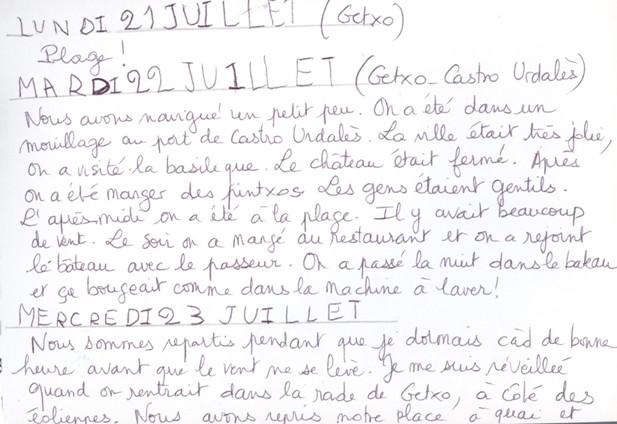 LUNDI 21 JUILLET (Getxo)
Plage !
MARDI 22 JUILLET (Getxo - Castro Urdalès)
Nous avons navigué un petit peu. On a été dans un
mouillage au port de Castro Urdalès. La ville était très jolie,
on a visité la basilique. Le château était fermé. Après
on a été manger des pintxos. Les gens étaient gentils.
L'après-midi on a été à la plage. Il y avait beaucoup
de vent. Le soir on a mangé au restaurant et on a rejoint
le bâteau avec le passeur. On a passé la nuit dans le bateau
et ça bougeait comme dans la machine à laver !
MERCREDI 23 JUILLET
Nous sommes repartis pendant que je dormais càd de bonne
heure avant que le vent ne se lève. Je me suis réveillée
quand on rentrait dans la rade de Getxo, à côté des
éoliennes. Nous avons repris notre place à quai et